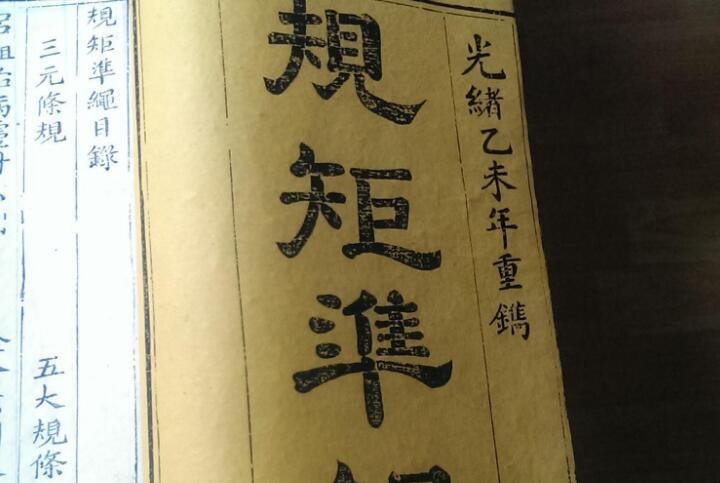 光緒乙未年重鐫
規矩準
規矩準繩目錄
三元條規 五大規條